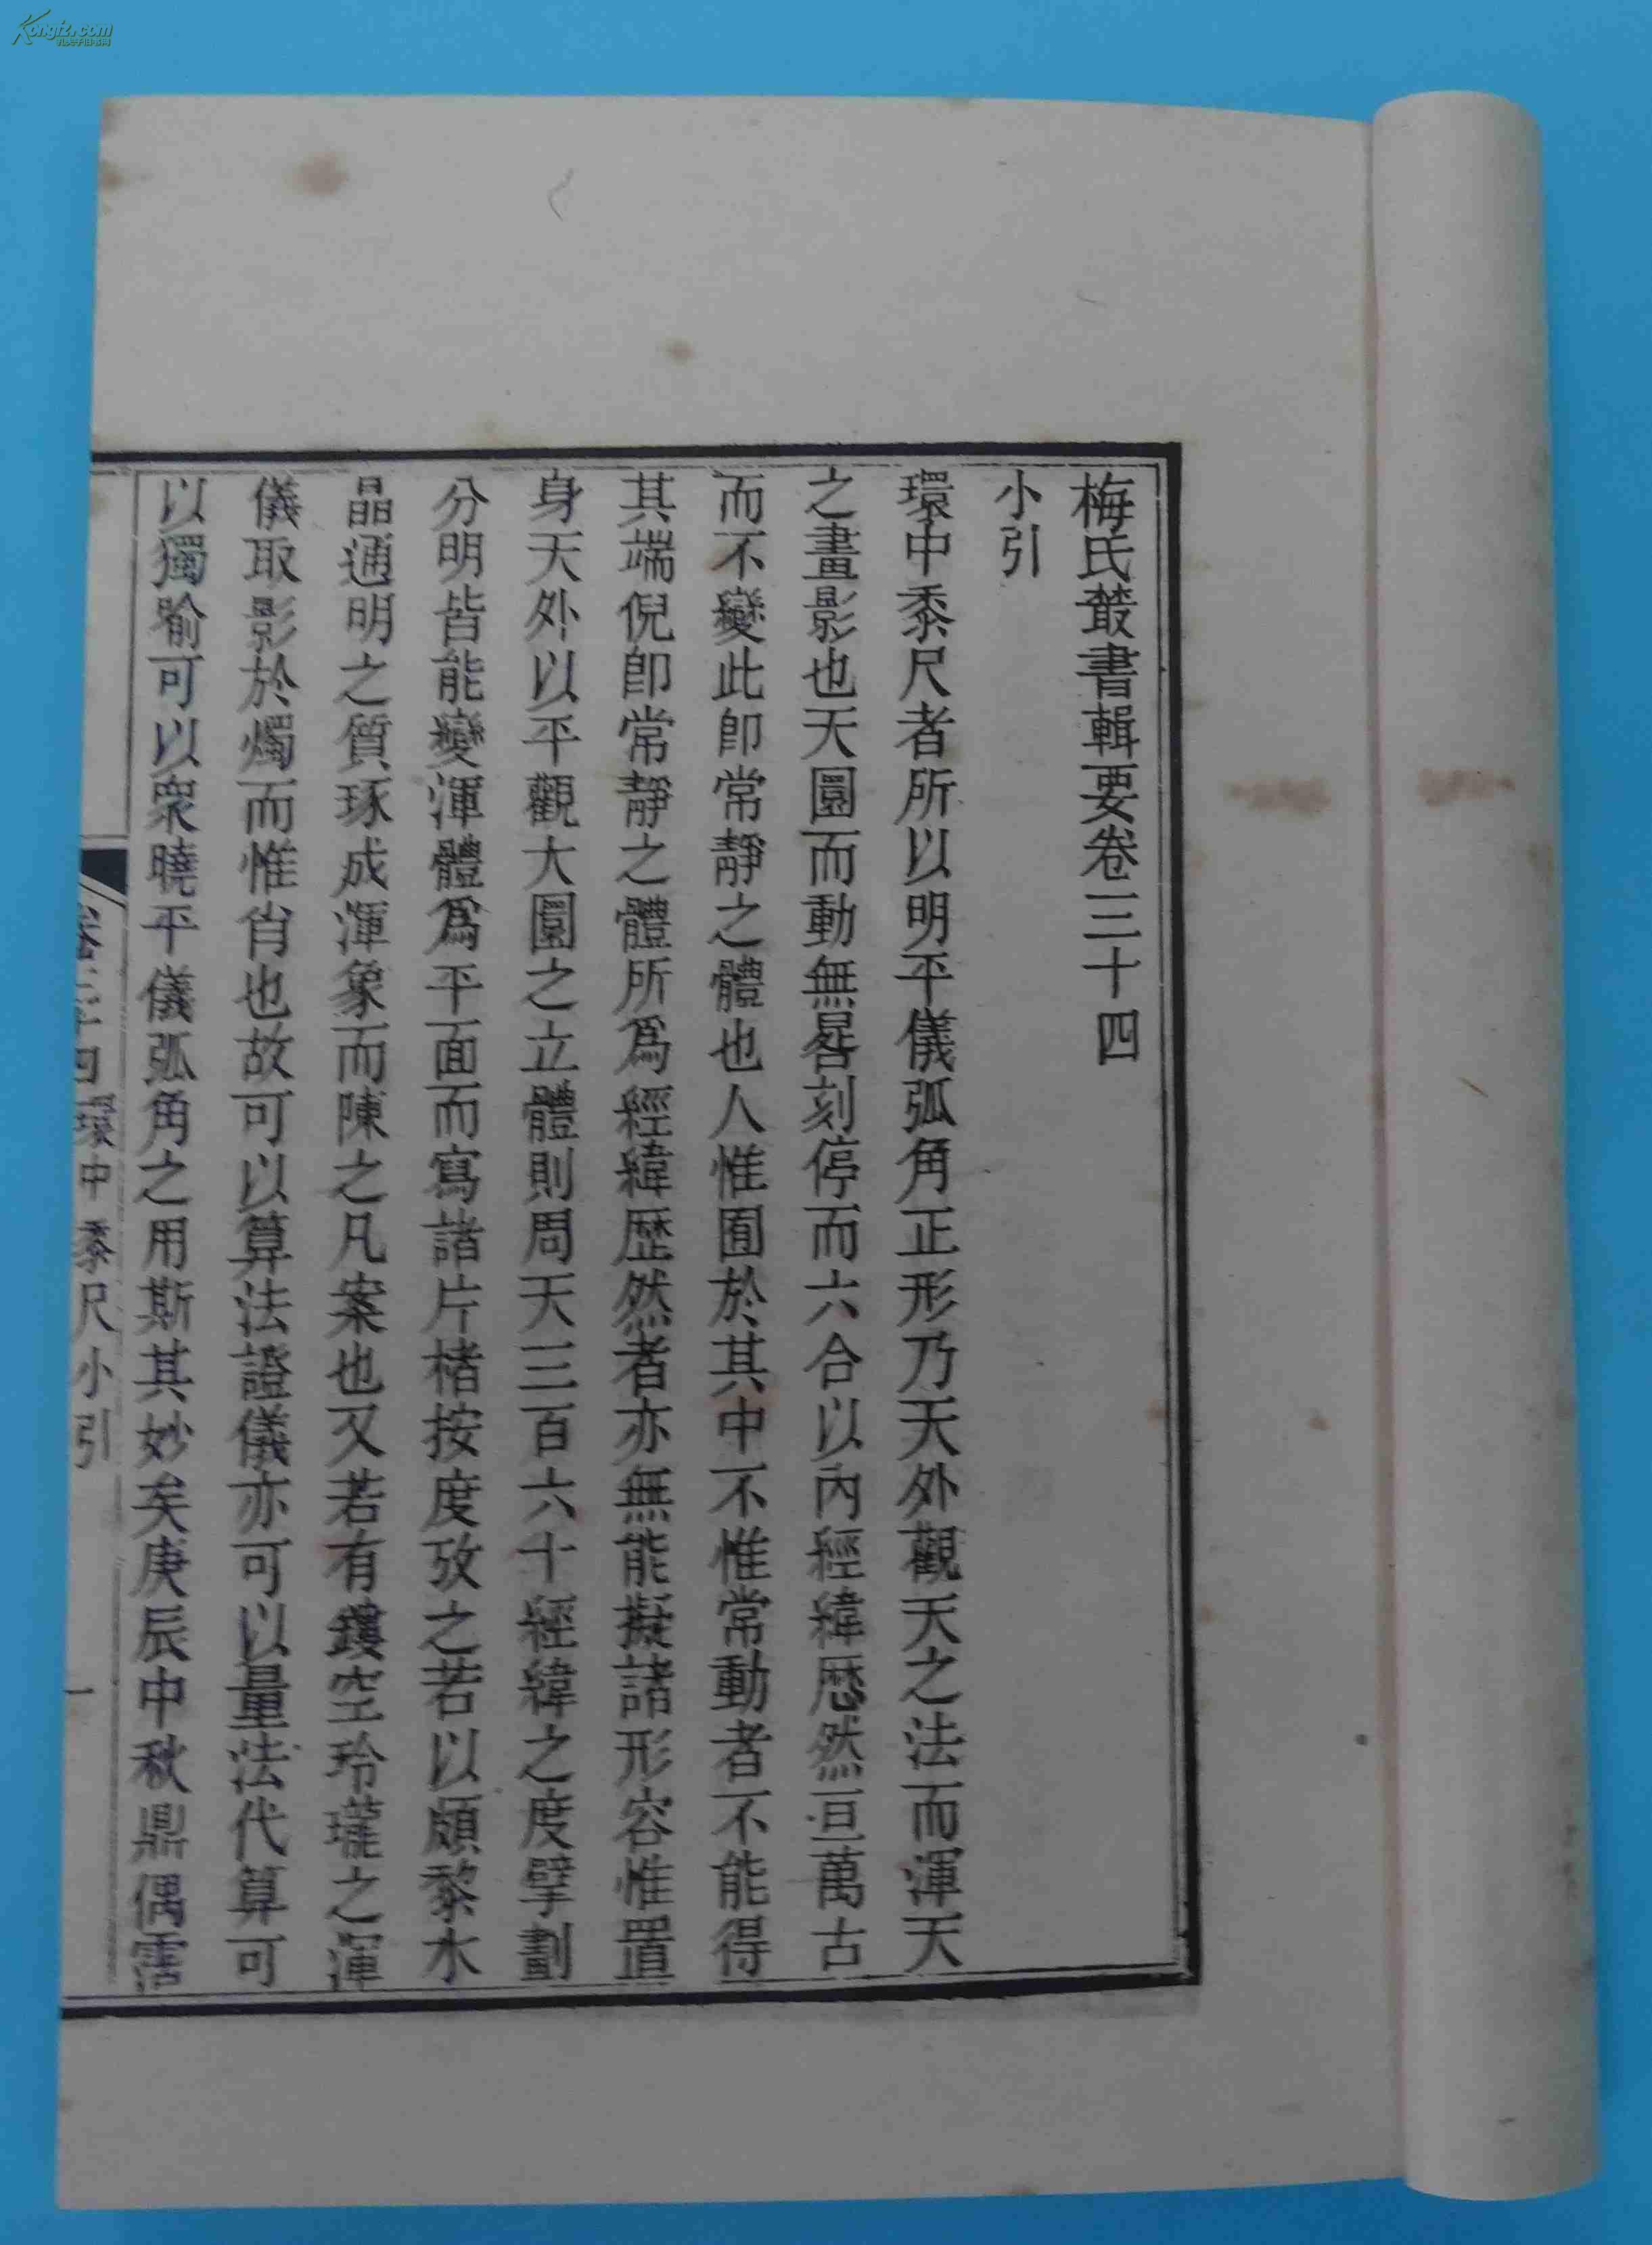 梅氏叢書輯要卷三十四
小引
環中黍尺者所以明平儀弧角正形乃天外觀天之法而渾天
之畫影也天圜而動無晷刻停而六合以內經緯歷然亘萬古
而不變此卽常靜之體也人惟囿於其中不惟常動者不能得
其端倪卽常靜之體所爲經緯歷然者亦無能擬諸形容惟置
身天外以平觀大圜之立體則周天三百六十經緯之度擘劃
分明皆能變渾體爲平面而寫諸片楮按度攷之若以頗黎水
晶通明之質琢成渾象而陳之几案也又若有鏤空玲瓏之渾
儀取影於燭而惟肖也故可以算法證儀亦可以量法代算可
以獨喻可以衆曉平儀弧角之用斯其妙矣庚辰中秋鼎偶霑
卷三十四環中黍尺小引
一
Kongfz.com
孔夫子旧书网